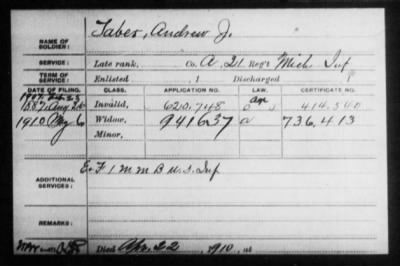 NAME OF SOLDIER: Taber, Andrew J.
SERVICE: Late rank, Co. A, 21 Reg't Mich Inf
TERM OF SERVICE: Enlisted , 1 Discharged
DATE OF FILING. CLASS. APPLICATION NO. LAW. CERTIFICATE NO.
1887 Aug Invalid, 620.748 414.540
1910 May 6 Widow, 941637 a 736.413
Minor,
ADDITIONAL SERVICES: E. F 1 M M B U.S. Inf
REMARKS:
Died Apr. 22 1910, at